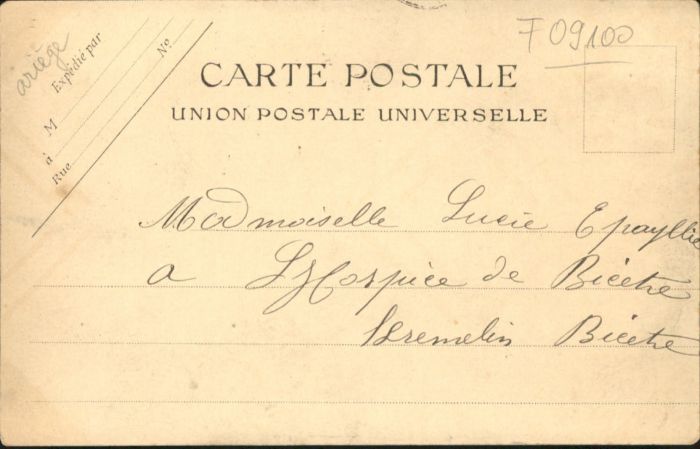 ariège
F 09100
Expédié par
M
No
à
Rue
CARTE POSTALE
UNION POSTALE UNIVERSELLE
Madmoiselle Lucie
a L'Hospice de Bicetre
Kremelin Bicetre